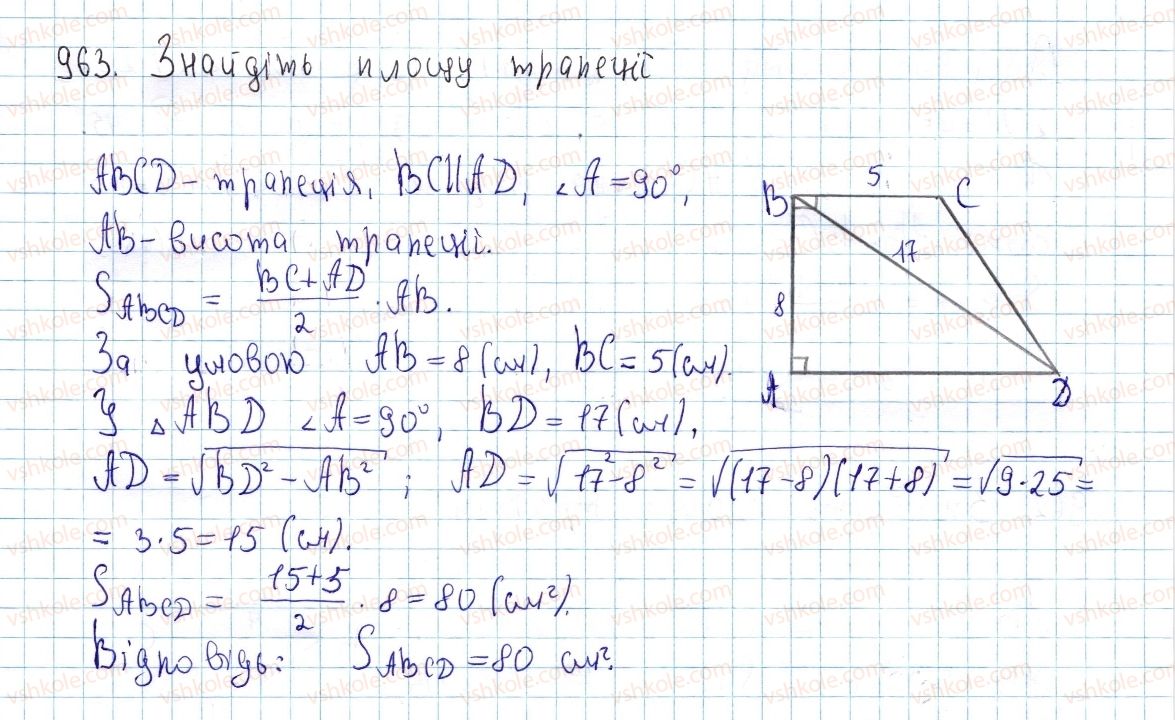 963. Знайдіть площу трапеції
ABCD – трапеція, BC||AD, ∠A = 90°,
AB – висота трапеції.
S_ABCD = (BC + AD)/2 · AB.
За умовою AB = 8 (см), BC = 5 (см).
У △ABD ∠A = 90°, BD = 17 (см),
AD = √(BD² – AB²); AD = √(17² – 8²) = √((17 – 8)(17 + 8)) = √(9·25) =
= 3·5 = 15 (см).
S_ABCD = (15 + 5)/2 · 8 = 80 (см²).
Відповідь: S_ABCD = 80 см².
5
B
C
17
8
A
D
vshkole.com